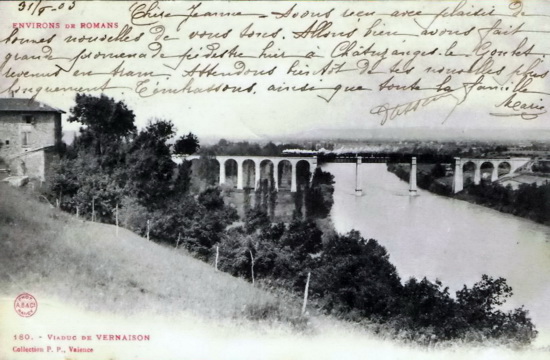 31/5-03
ENVIRONS DE ROMANS
Chère Jeanne - Avons vu avec plaisir de
bonnes nouvelles de vous tous. Allons bien avons fait
grande promenade pédestre hier à Chateuranges le Goubet
revenus en tram. Attendons bientôt de tes nouvelles plus
longuement T'embrassons, ainsi que toute ta famille
Marie
160. - VIADUC DE VERNAISON
Collection P. P., Valence